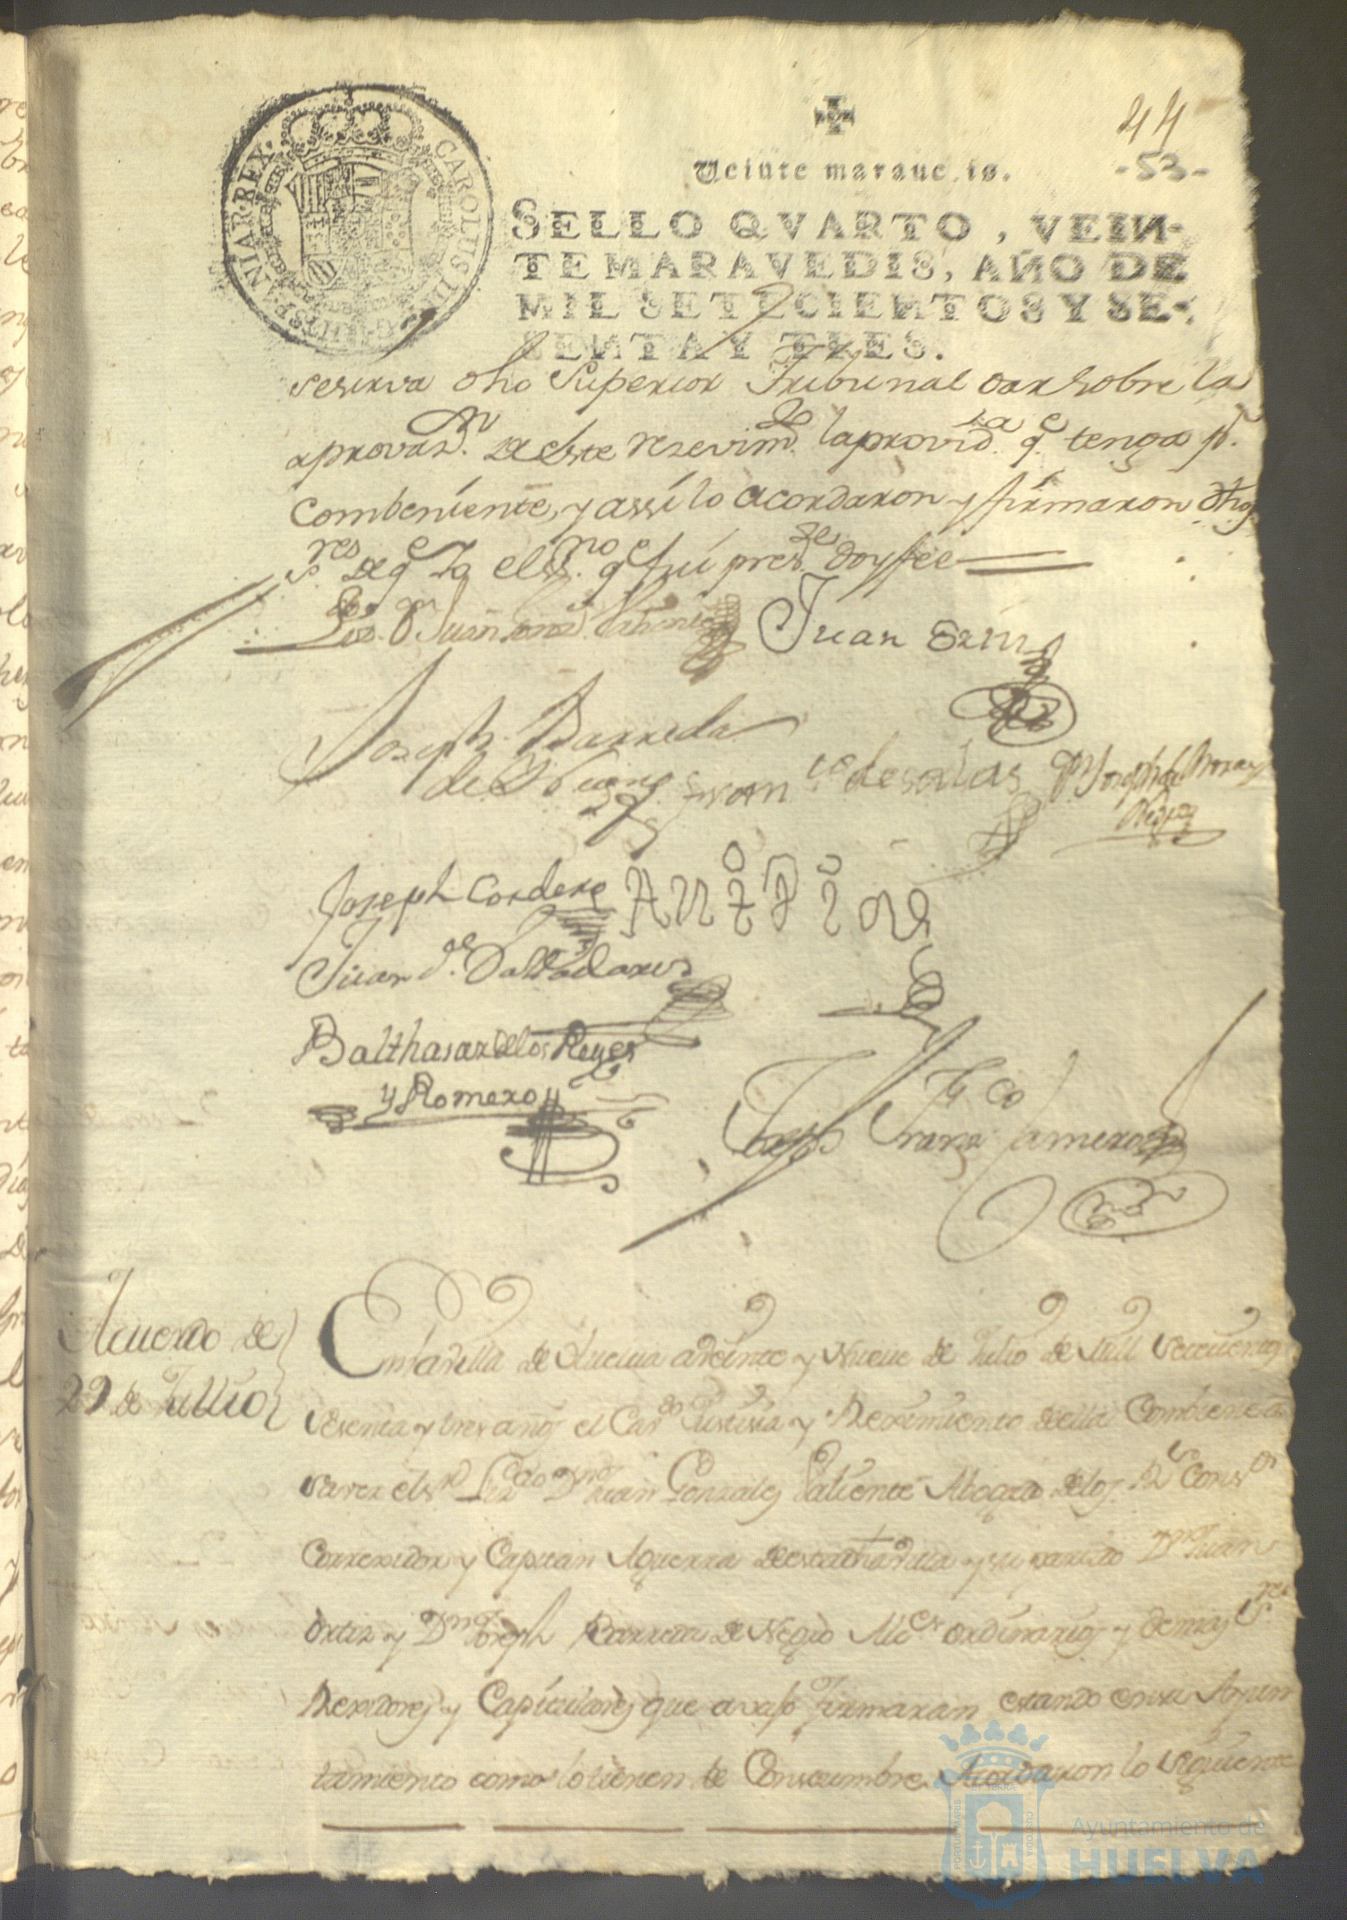 CAROLUS III D G HISP NIAR REX
44
Veinte maraue is.
-53-
SELLO QVARTO, VEIN-
TE MARAVEDIS, AÑO DE
MIL SETECIENTOS Y SE-
SENTA Y TRES.
reserva dho Superior Tribunal dar sobre la
aprovazn. de este rezevimdo. la provida. qe. tenga pr.
combeniente, y assi lo acordaron y firmaron dhos
sres de qe Yo el ssno qe fui preste doy fee
Lizdo Dn Juan Gonz Patiente Juan Ortiz
Joseph Barreda
de Franco de salas Dn Joseph de
Joseph Cordero Antt
Juan de Valladares
Balthasar de los Reyes
y Romero
Joseph Franco Camero
Acuerdo de
29 de Jullio
En la Villa de Huelva a Veinte y Nueve de Julio de Mill Setecientos
Sesenta y tres años el Cavdo Justizia y Reximiento de ella Combiene a
saver el sr Lizdo Dn Juan Gonzales Patiente Abogado de los Rs Consos
Correxidor y Capitan Aguerra de esta dha Villa y su partido Dn Juan
Ortiz y Dn Joseph Barreda de Alces ordinarios y demas Sres
Rexidores y Capitulares que avaxo firmaran estando en su Ayun
tamiento como lo tienen de Constumbre Acordaron lo siguiente
Ayuntamiento de
HUELVA